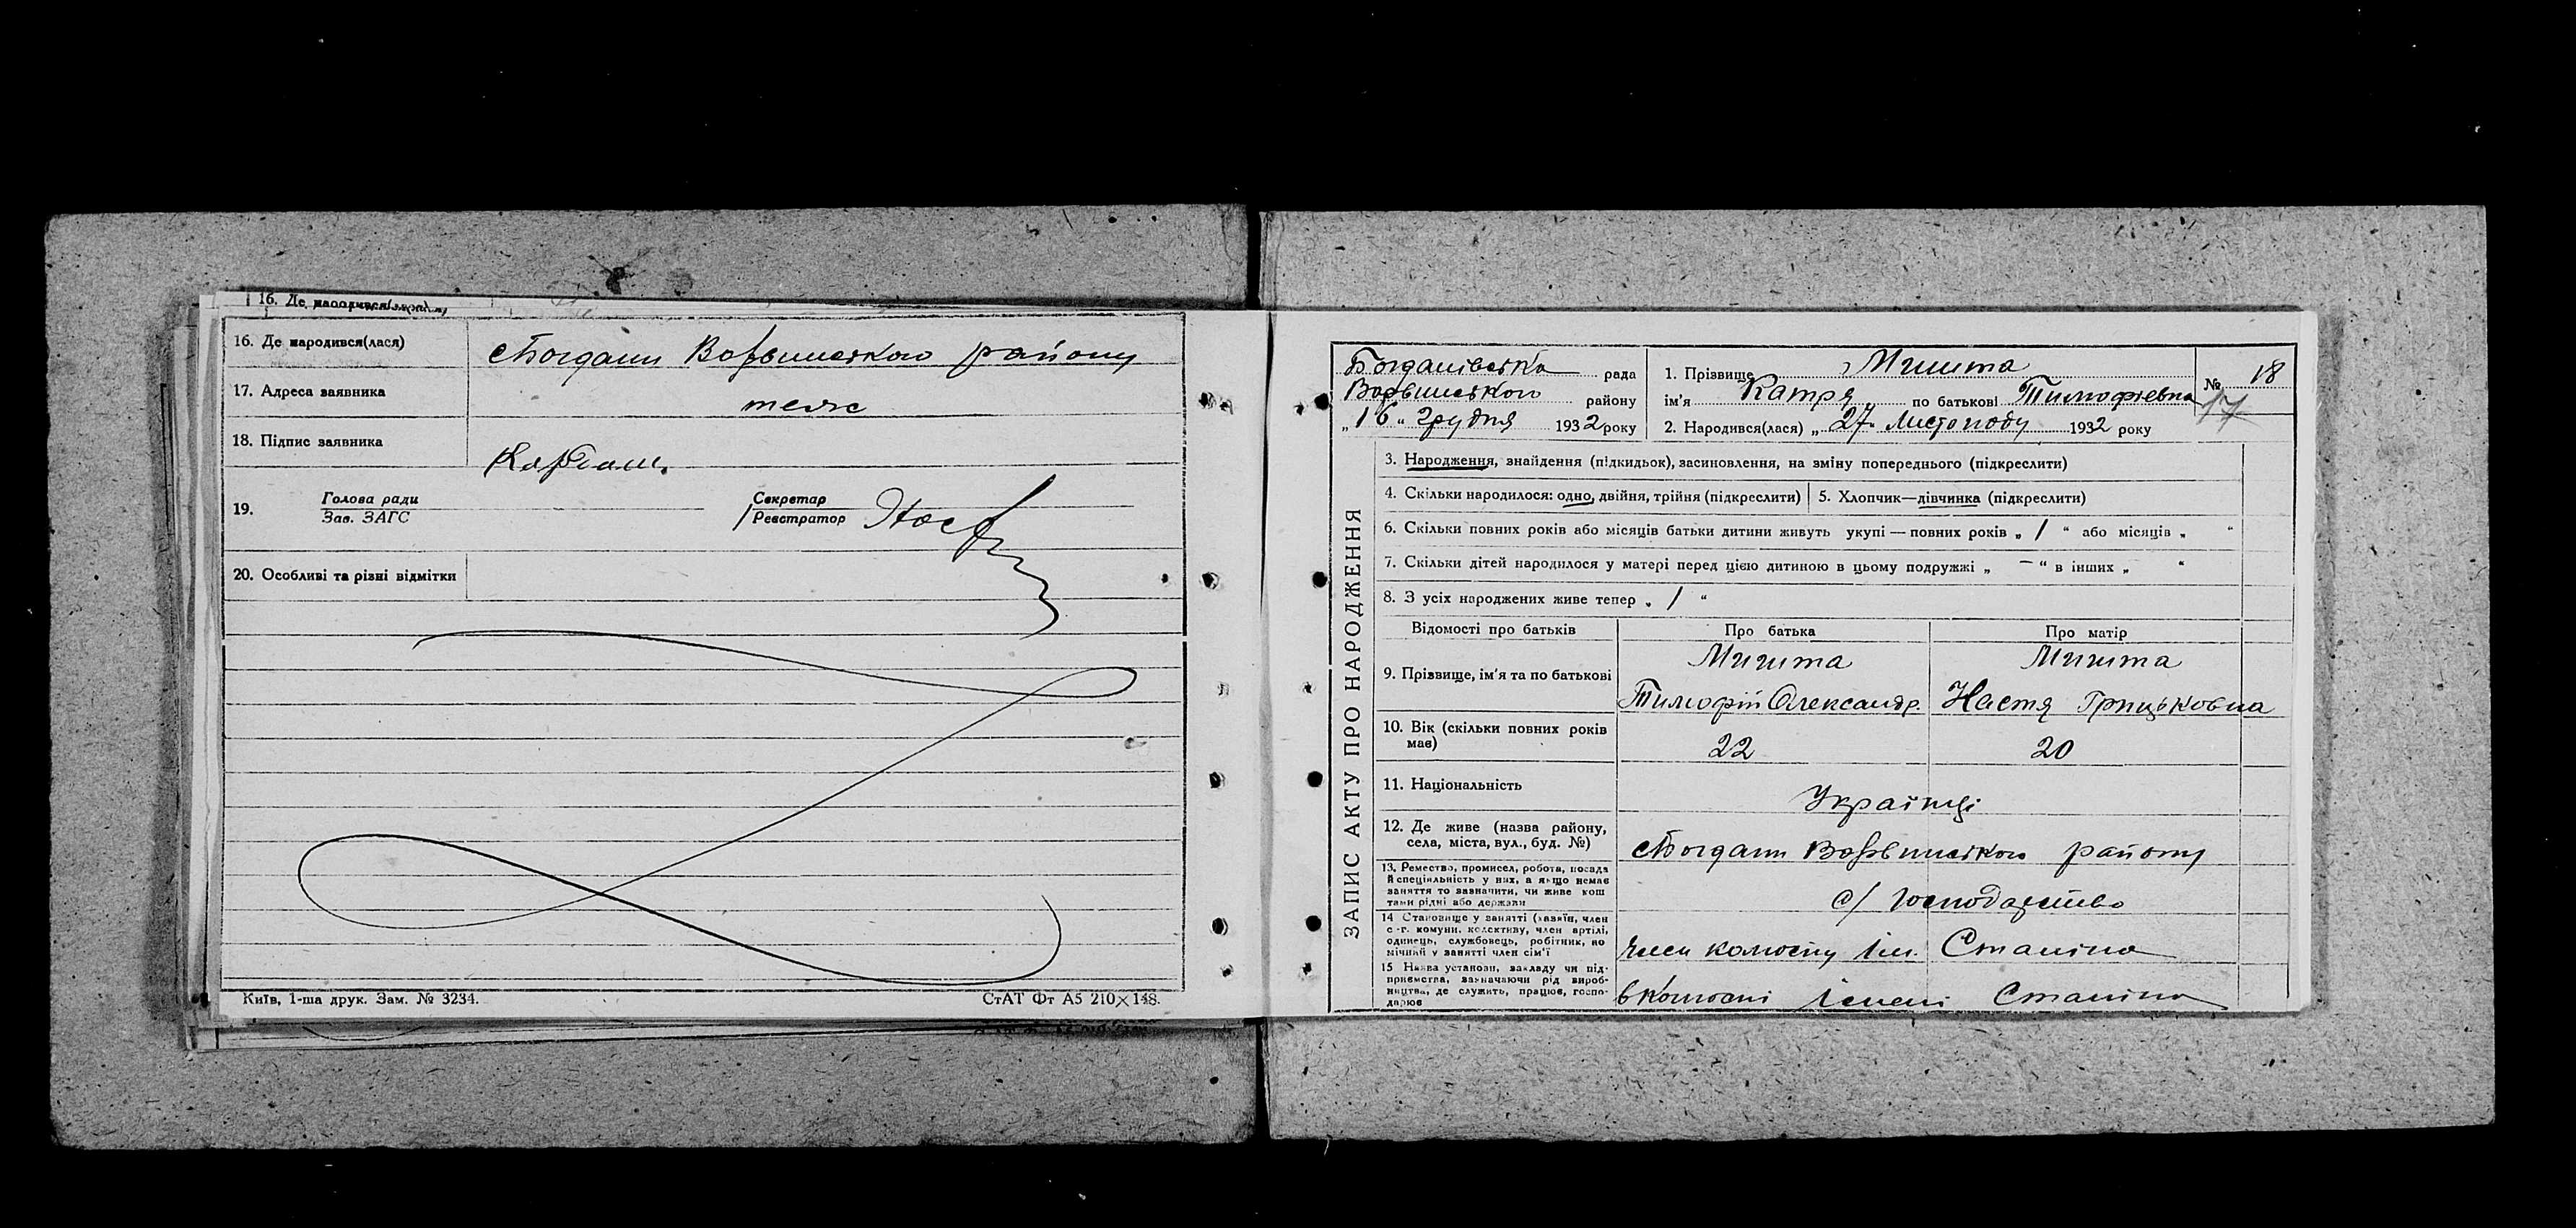 16. Де народився(лася)
16. Де народився(лася) Богдани Варвинського району
17. Адреса заявника теж
18. Підпис заявника
19. Голова ради
Зав. ЗАГС
Секретар
Реєстратор
20. Особливі та різні відмітки
Київ, 1-ша друк. Зам. № 3234.
СтАТ Фт А5 210×148.
ЗАПИС АКТУ ПРО НАРОДЖЕННЯ
Богданівська рада
Варвинського району
„16" Грудня 1932 року
1. Прізвище Микита
ім'я Катря по батькові Тимофієвна
2. Народився(лася) „27" Листопаду 1932 року
№ 18
17
3. Народження, знайдення (підкидьок), засиновлення, на зміну попереднього (підкреслити)
4. Скільки народилося: одно, двійня, трійня (підкреслити)
5. Хлопчик—дівчинка (підкреслити)
6. Скільки повних років або місяців батьки дитини живуть укупі — повних років „ 1 " або місяців „ "
7. Скільки дітей народилося у матері перед цією дитиною в цьому подружжі „ — " в інших „ "
8. З усіх народжених живе тепер „ 1 "
Відомості про батьків Про батька Про матір
9. Прізвище, ім'я та по батькові
Микита Микита
Тимофій Олександр Настя Грицьковна
10. Вік (скільки повних років має) 22 20
11. Національність Українці
12. Де живе (назва району,
села, міста, вул., буд. №) Богдани Варвинського району
13. Ремество, промисел, робота, посада
й спеціяльність у них, а якщо немає
заняття то зазначити, чи живе кош
тами рідні або держави
с/ господарство
14 Становище у занятті (хазяїн, член
с.-г. комуни, колективу, член артілі,
одинець, службовець, робітник, по
мічний у занятті член сім'ї
член колгоспу ім. Сталіна
15 Назва установи, закладу чи під-
приємства, зазначаючи рід вироб-
ництва, де служить, працює, госпо-
дарює
в колгоспі імені Сталіна